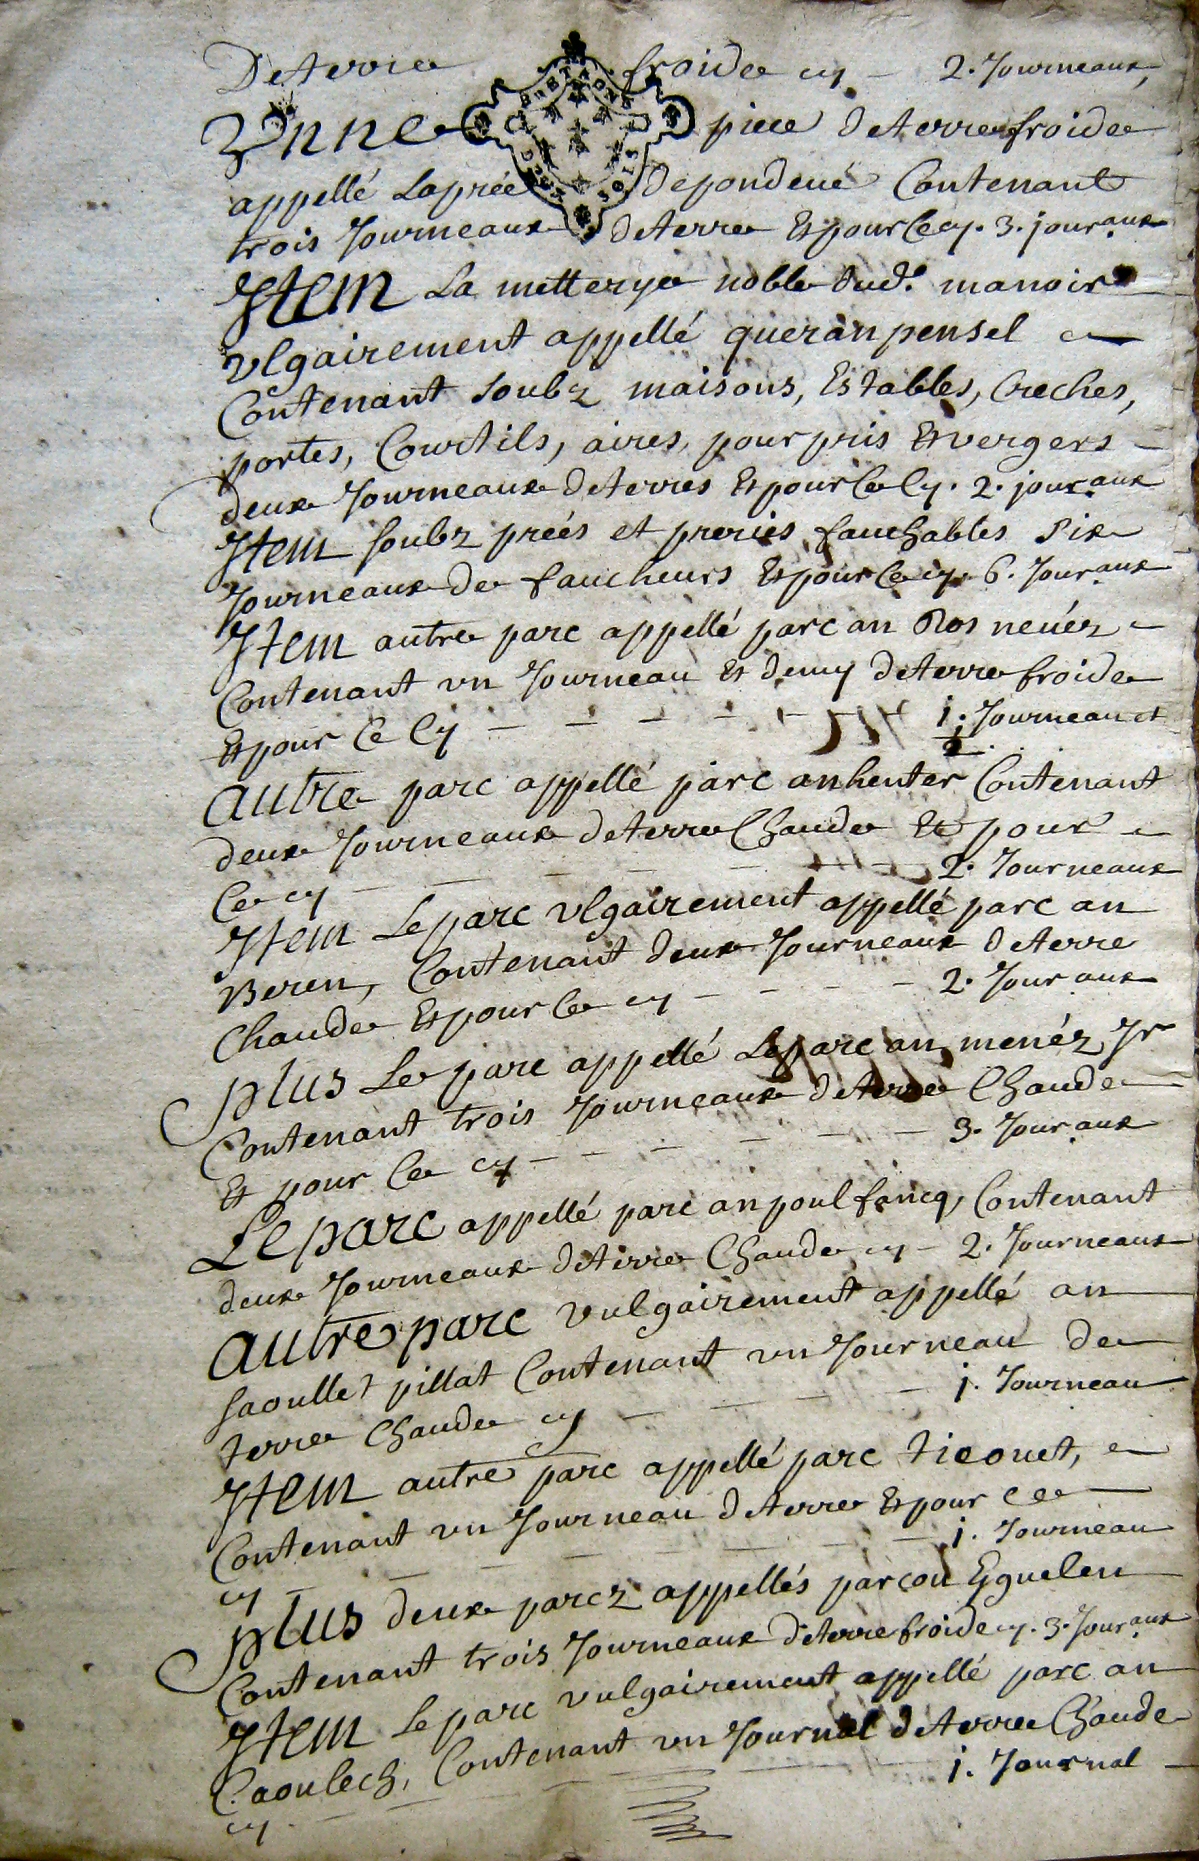 De terre froide cy – 2. Journeaux,
Vnne piece de terre froide
appellé La prée de pondeué Contenant
trois Journeaux de terre Et pour Ce cy. 3. jour.aux
Item La metterye noble dud.t manoir
vlgairement appellé queranpensel
Contenant soubz maisons, Estables, Creches,
portes, Courtils, aires, pourpris Et vergers –
deux Journeaux de terres Et pour Ce Cy. 2. jour.aux
Item soubz preés et preries fauchables six
Journeaux de faucheurs Et pour Ce cy. 6. Jour.aux
Item autre parc appellé parc an Ros neuéz –
Contenant vn Journeau Et demy de terre froide
Et pour Ce Cy – – – – – – 1. Journeau et 1/2
autre parc appellé parc an henter Contenant
deux Journeaux de terre Chaude Et pour –
Ce cy – – – – – 2. Journeaux
Item Le parc vlgairement appellé parc an
Beren, Contenant deux Journeaux de terre
Chaude Et pour Ce cy – – – – 2. Jour aux
plus Le parc appellé Le parc an menéz,
Contenant trois Journeaux de terre Chaude
Et pour Ce cy – – – – – 3. Jour.aux
Le parc appellé parc an poulfancq, Contenant
deux Journeaux de terre Chaude cy – 2. Journeaux
autre parc vulgairement appellé an
saoullet pillat Contenant vn Journeau de
terre Chaude cy – – – – j. Journeau
Item autre parc appellé parc ticouet, –
Contenant vn Journeau de terre Et pour ce
cy – – – – – – j. Journeau
plus deux parcz appellés parcou Eguelen
Contenant trois Journeaux de terre froide cy. 3. Jour.aux
Item Le parc vulgairement appellé parc an
Caoulech, Contenant vn Journal de terre Chaude
cy – – – – – j. Journal –